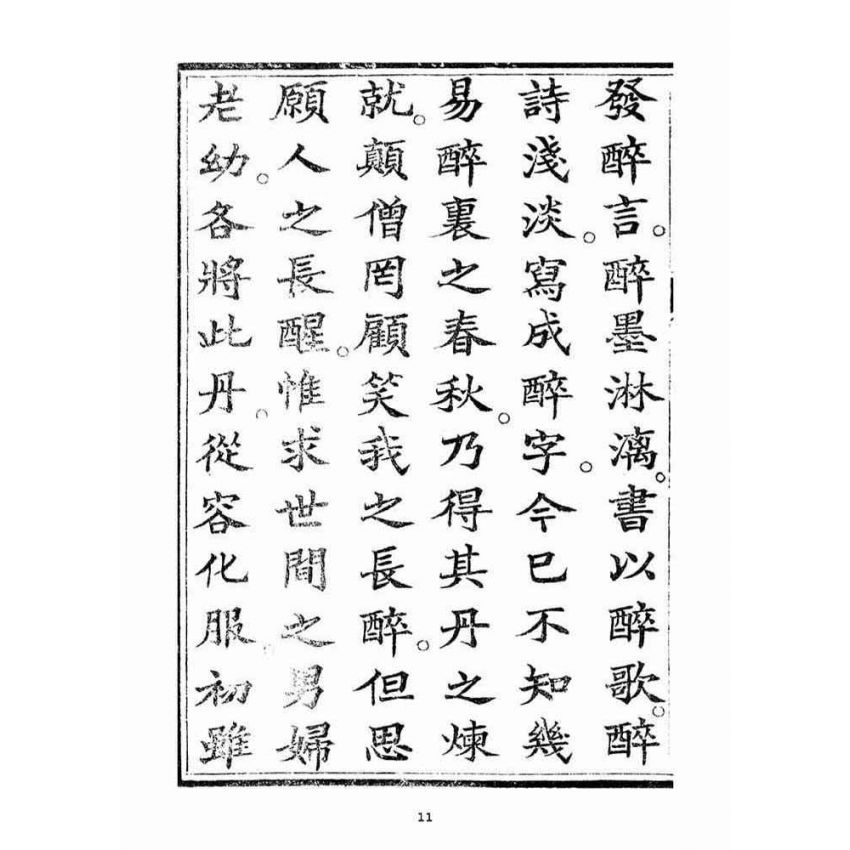 發醉言。醉墨淋漓。書以醉歌。醉
詩淺淡。寫成醉字。今已不知幾
易醉裏之春秋。乃得其丹之煉
就。顛僧罔顧笑我之長醉。但思
願人之長醒。惟求世間之男婦
老幼。各將此丹。從容化服。初雖
11